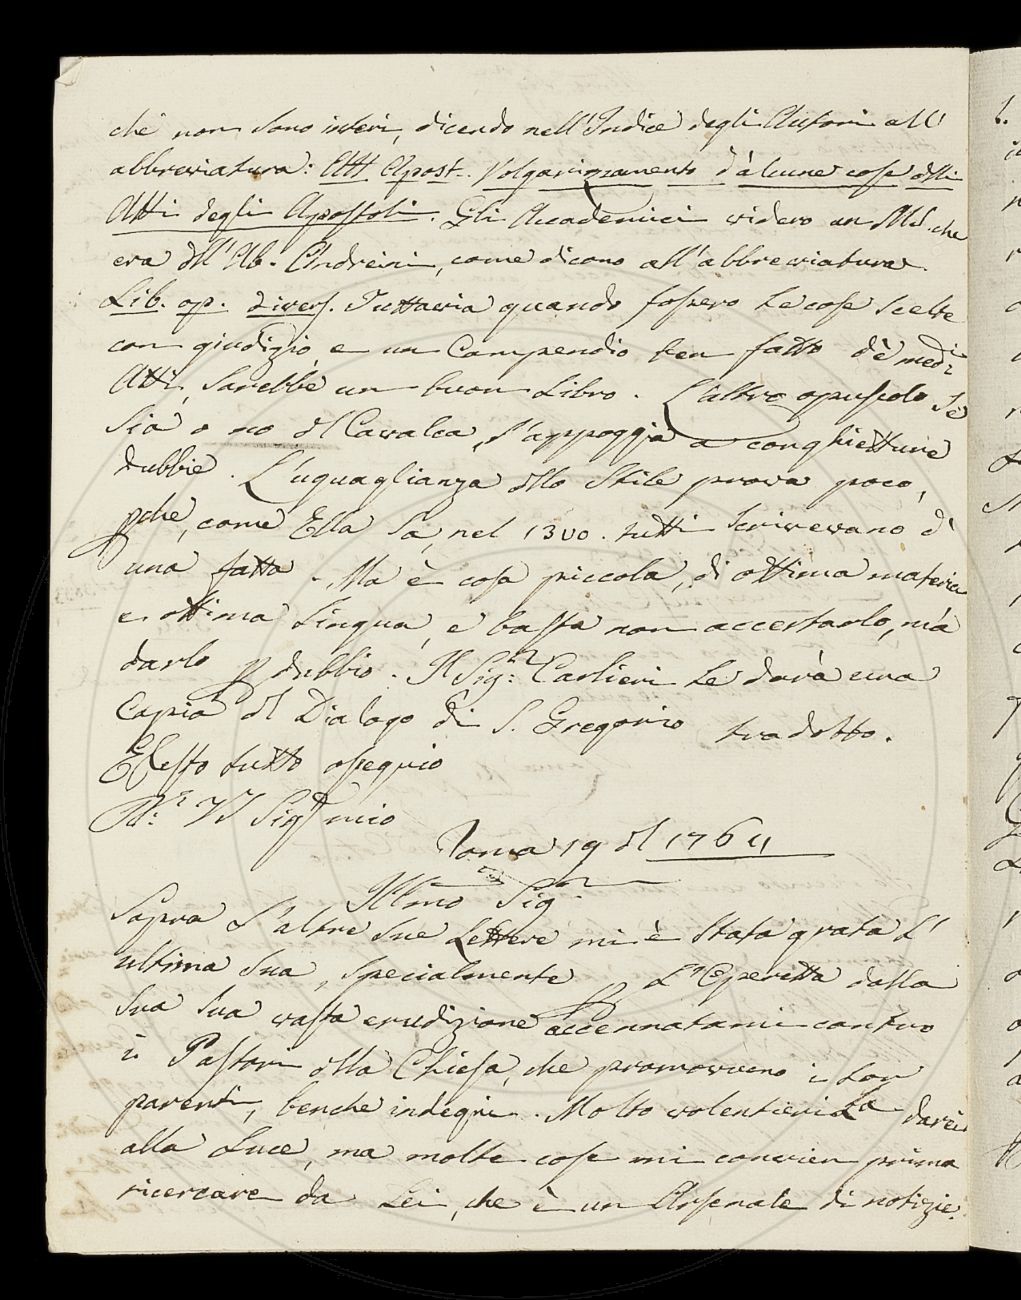 chè non sono interi, dicendo nell'Indice degli Autori all'
abbreviatura: Att. Apost. Volgarizzamento d'alcune cose dlli
Atti degli Apostoli. Gli Accademici videro un Ms. che
era dll'Ab. Andreini, come dicono all'abbreviatura
Lib. op. divers. Tuttavia quando fossero le cose scelte
con giudizio, e un Compendio ben fatto dè medi-
Atti, sarebbe un buon Libro. L'altro opuscolo, se
sia o no dl Cavalca, s'appoggia a conghietture
dubbie. L'uguaglianza dllo Stile prova poco,
pche, come Ella sa, nel 1300. tutti scrivevano d'
una fatta. Ma è cosa piccola, di ottima materia
e ottima Lingua, e basta non accertarlo, mà
darlo p dubbio. Il Sig.r Carlieri Le darà una
Copia dl Dialogo di S. Gregorio tradotto.
E resto tutto ossequio
Sig mio
Roma 19 dl 1764
Illmo Sig
Sopra l'altre Sue Lettere mi è stata grata l'
ultima Sua, specialmente p L'Operetta dalla
Sua Sua vasta erudizione accennatami contro
i Pastori dlla Chiesa, che promovveno i Lor
parenti, benche indegni. Molto volentieri La darei
alla Luce, ma molte cose mi convien prima
ricercare da Lei, che è un Arsenale di notizie.